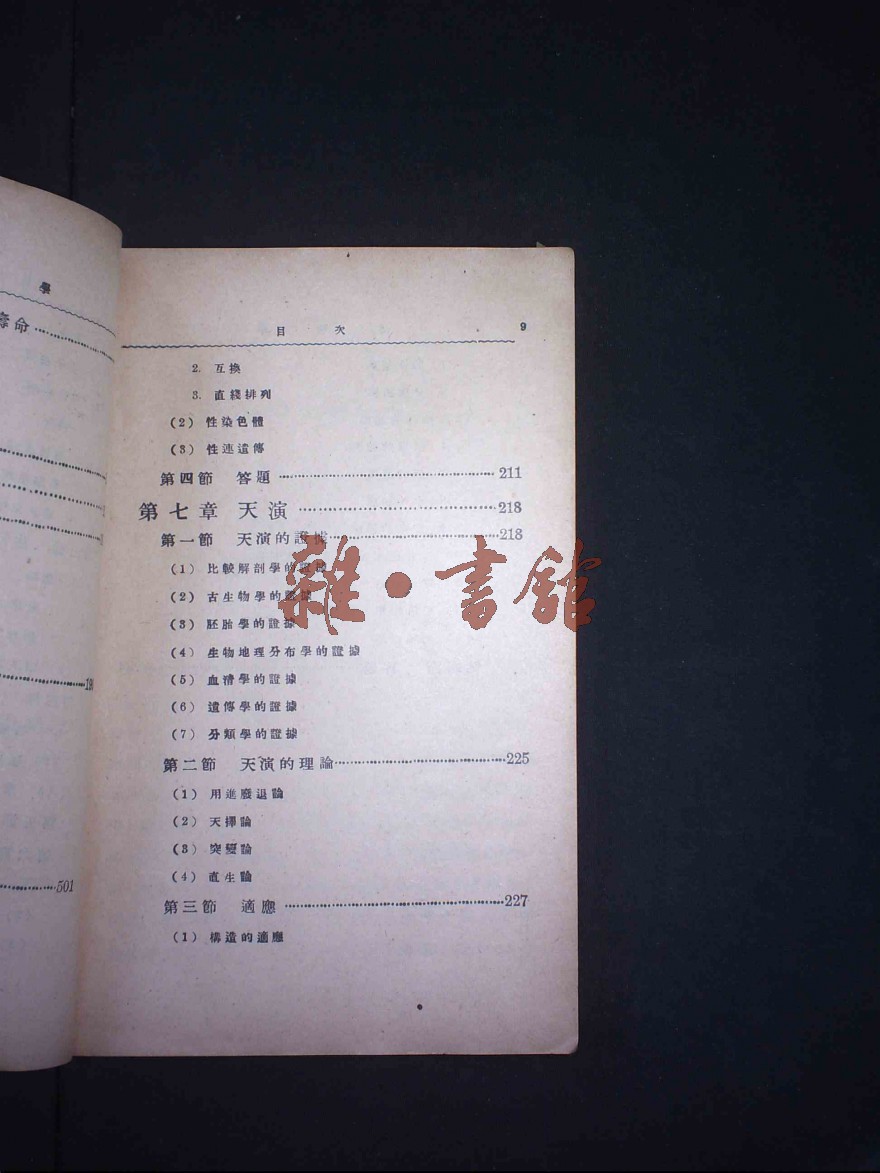 學
命
501
目次 9
2. 互換
3. 直綫排列
(2) 性染色體
(3) 性連遺傳
第四節 答題 211
第七章 天演 218
第一節 天演的證據 218
(1) 比較解剖學的證據
(2) 古生物學的證據
(3) 胚胎學的證據
(4) 生物地理分布學的證據
(5) 血清學的證據
(6) 遺傳學的證據
(7) 分類學的證據
第二節 天演的理論 225
(1) 用進廢退論
(2) 天擇論
(3) 突變論
(4) 直生論
第三節 適應 227
(1) 構造的適應
雜·書館